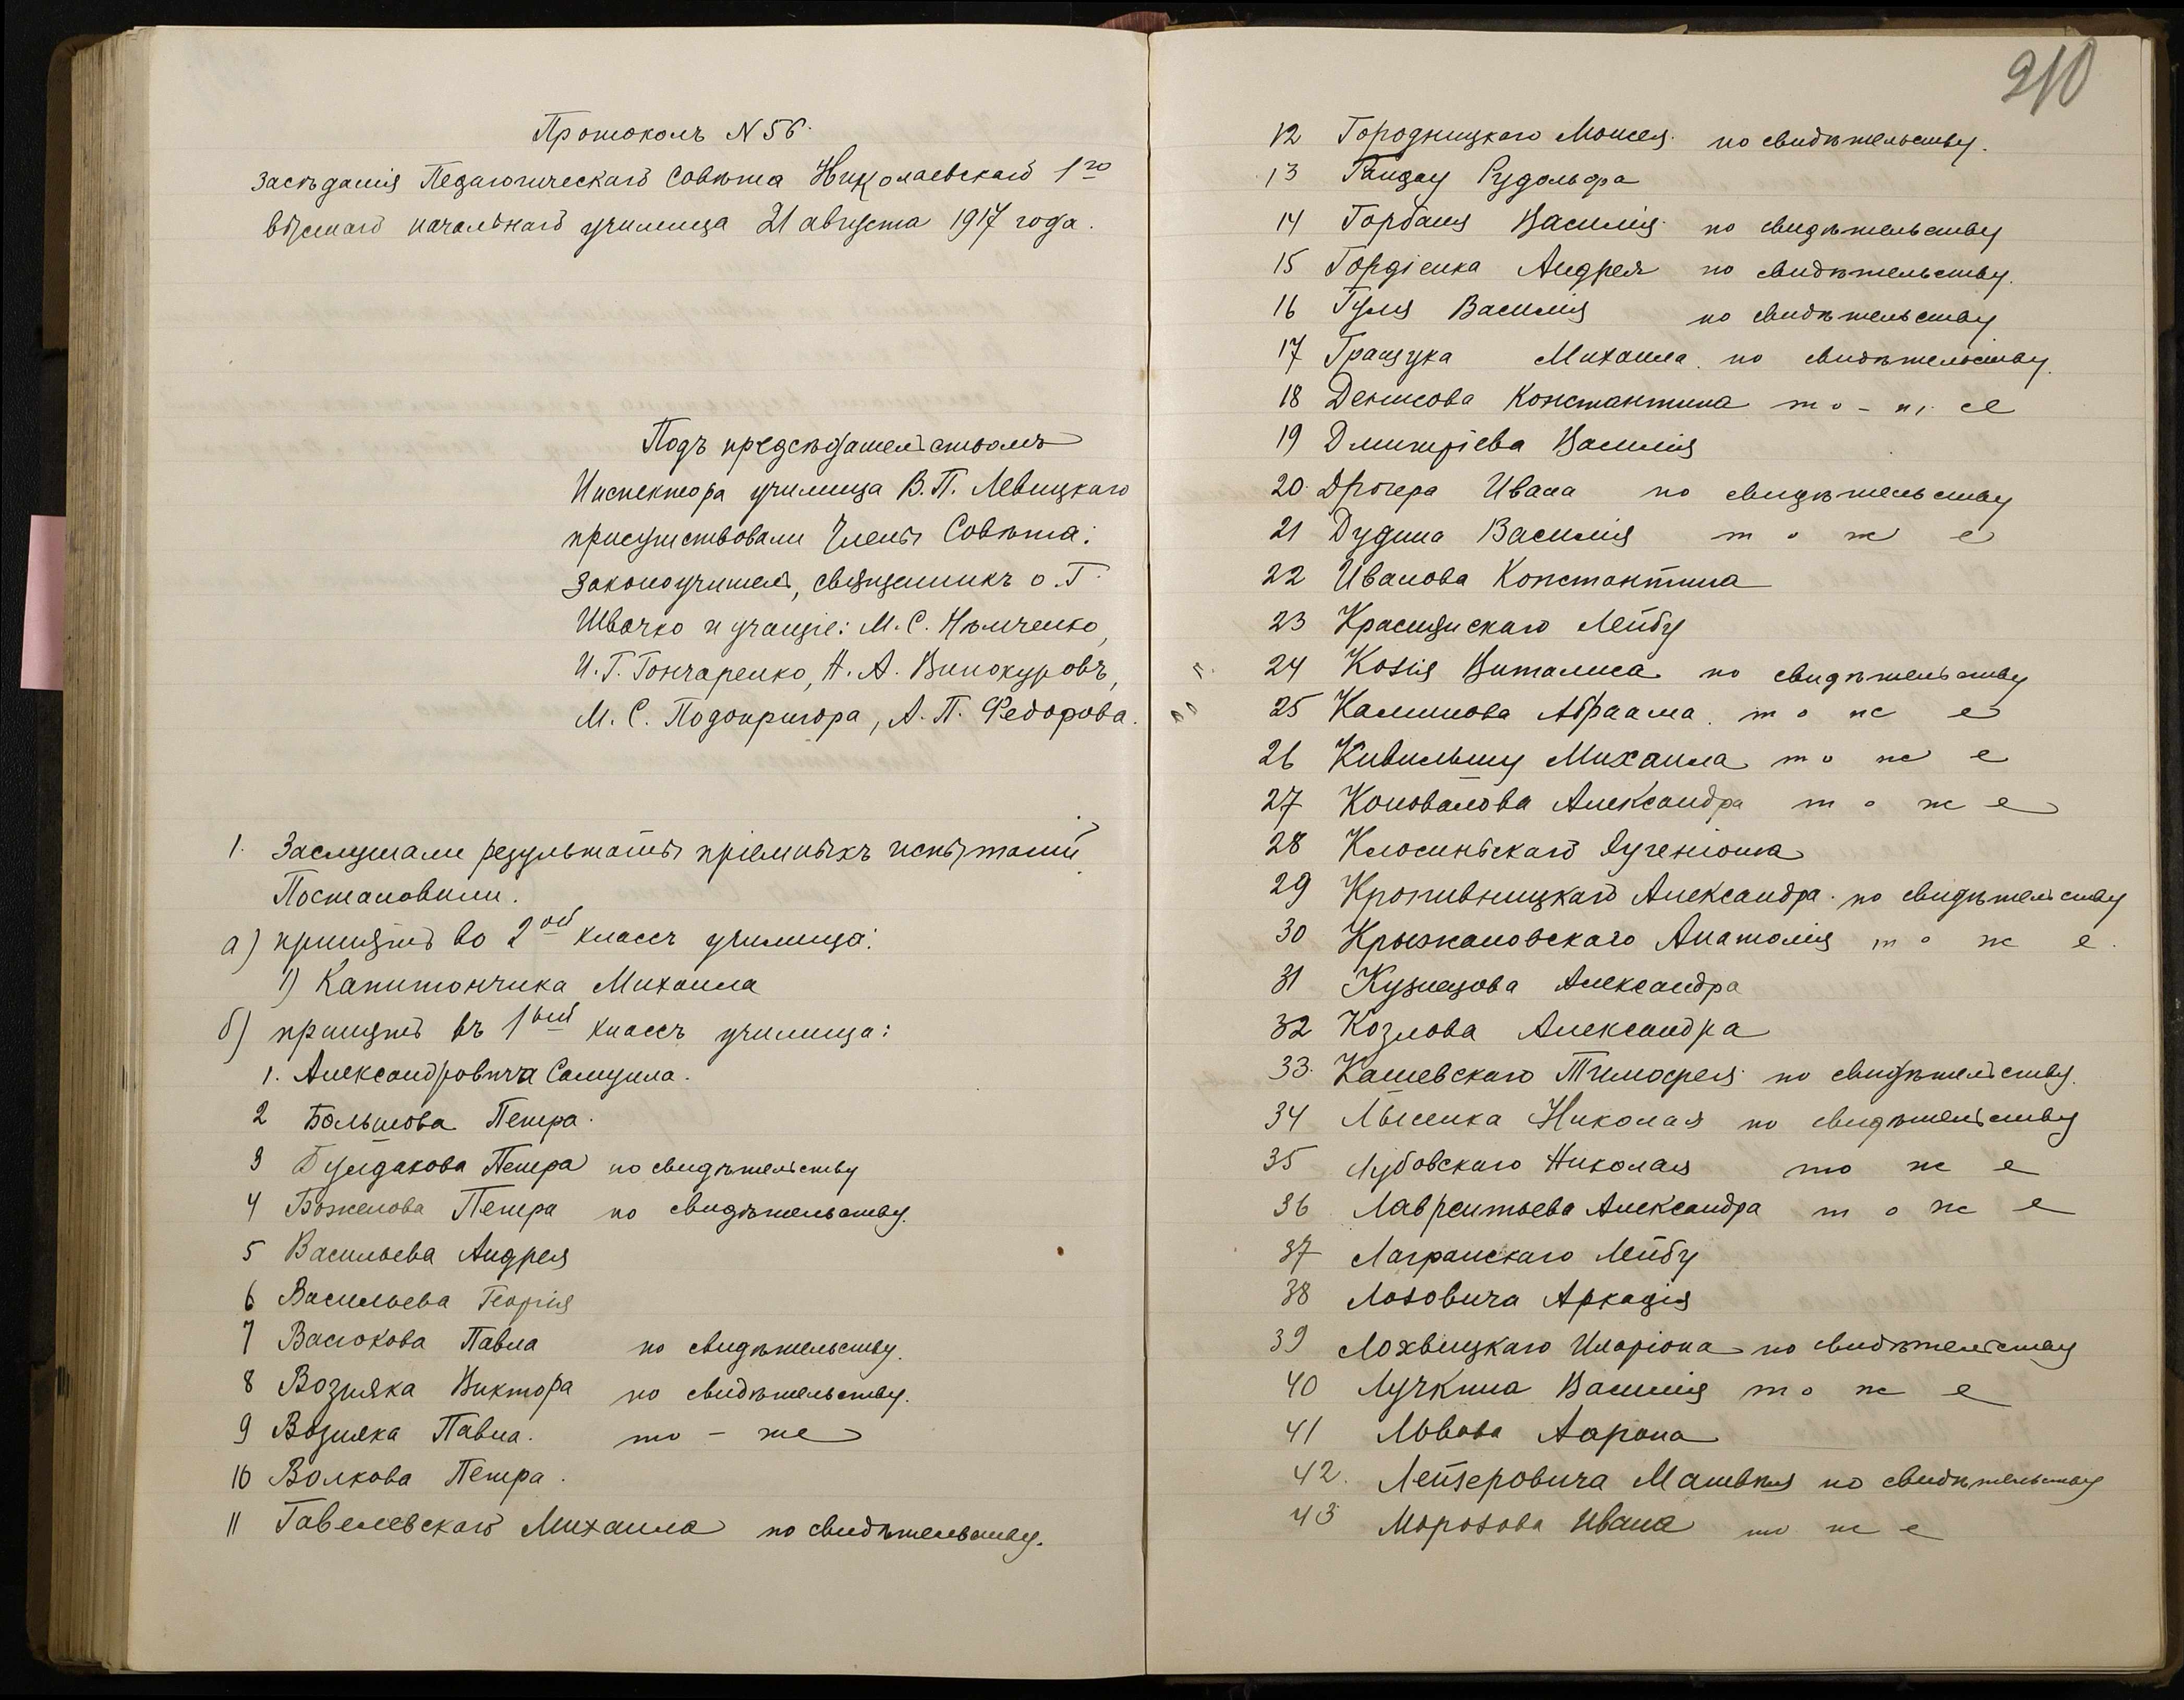 Протоколъ N 56.
засѣданія Педагогическаго Совѣта Николаевскаго 1го
высшаго начальнаго училища 21 августа 1917 года.
Подъ предсѣдательствомъ
Инспектора училища В. П. Левицкаго
присутствовали Члены Совѣта:
Законоучитель, священникъ о. Г.
Швачко и учащіе: М. С. Нѣмченко,
И. Г. Гончаренко, Н. А. Винокуровъ,
М. С. Подопригора, А. П. Федорова.
1. Заслушали результаты пріемныхъ испытаній.
Постановили.
а) принять во 2ой классъ училища:
1) Капитончика Михаила
б) принять въ 1ый классъ училища:
1. Александровича Самуила.
2 Большова Петра.
3 Булдакова Петра по свидѣтельству
4 Боженова Петра по свидѣтельству.
5 Васильева Андрея
6 Васильева Георгія
7 Васюкова Павла по свидѣтельству.
8 Возняка Виктора по свидѣтельству.
9 Возняка Павла. то - же
10 Волкова Петра.
11 Гавелевскаго Михаила по свидѣтельству.
210
12 Городницкаго Моисея по свидѣтельству.
13 Рудольфа
14 Горбаня Василія по свидѣтельству
15 Гордіенка Андрея по свидѣтельству.
16 Гуля Василія по свидѣтельству
17 Гращука Михаила по свидѣтельству.
18 Денисова Константина то - же
19 Дмитріева Василія
20. Ивана по свидѣтельству
21 Дудина Василія то же
22 Иванова Константина
23 Лейбу
24 Козія Виталиса по свидѣтельству
25 Калинова Абраама. то же
26 Кивильшу Михаила то же
27 Коновалова Александра то же
28 Клосиньскаго Яугеніюша
29 Кропивницкаго Александра. по свидѣтельству
30 Крыжановскаго Анатолія то же.
31 Кузнецова Александра
32 Козлова Александра
33. Кашевскаго Тимофея по свидѣтельству.
34 Лысенка Николая по свидѣтельству
35 Лубовскаго Николая то же
36 Лаврентьева Александра то же
37 Лагранскаго Лейбу
38 Лозовича Аркадія
39 Лохвицкаго Иларіона по свидѣтельству
40 Лучкина Василія то же
41 Львова Аарона
42. Лейзеровича Матвѣя по свидѣтельству
43 Морозова Ивана то же